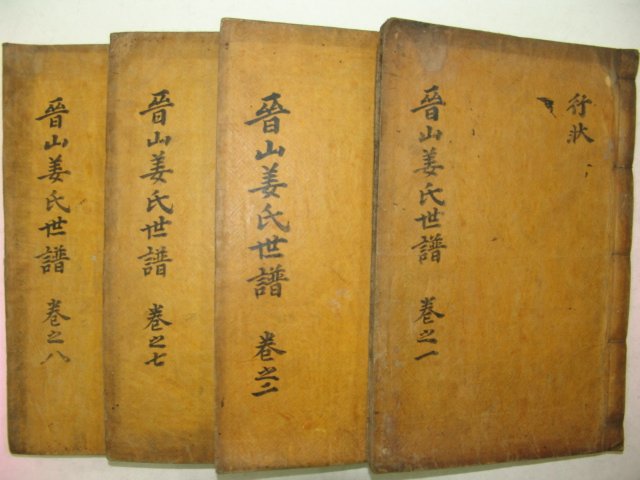 行狀
晉山姜氏世譜 卷之一
晉山姜氏世譜 卷之二
晉山姜氏世譜 卷之七
晉山姜氏世譜 卷之八